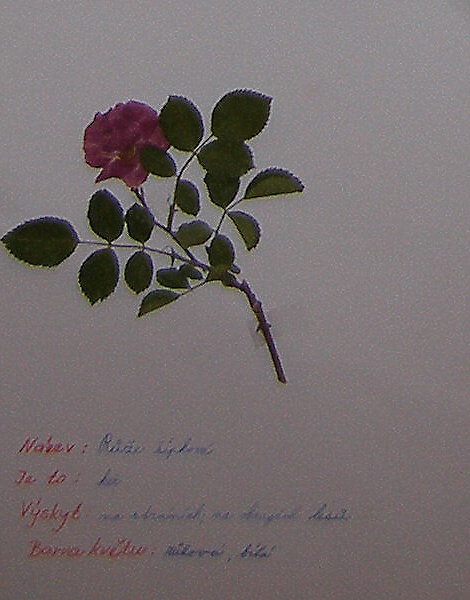 Název: Růže šípková
Je to: keř
Výskyt na stráních, na krajích lesů
Barva květu: růžová, bílá